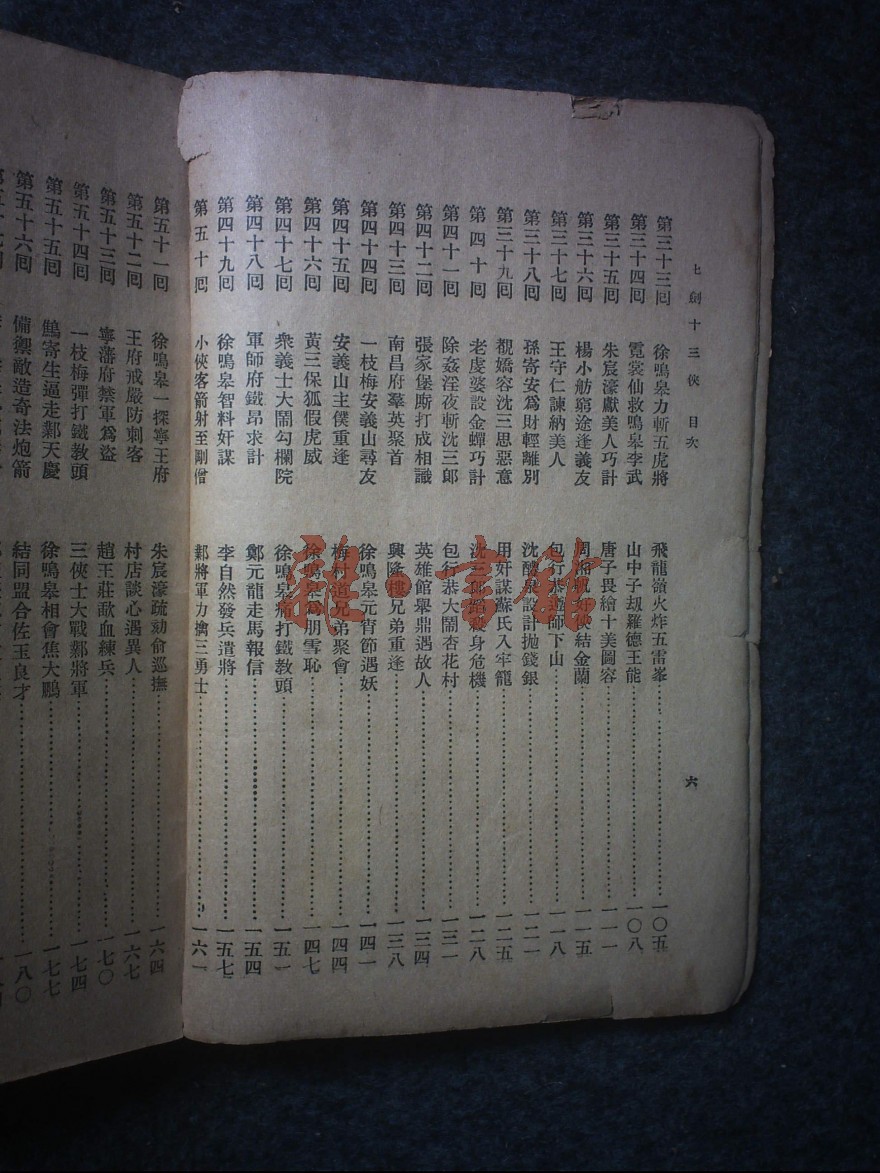 七劍十三俠 目次 六
第三十三囘 徐鳴皋力斬五虎將 飛龍嶺火炸五雷峯 一〇五
第三十四囘 霓裳仙救鳴皋李武 山中子刼羅德王能 一〇八
第三十五囘 朱宸濠獻美人巧計 唐子畏繪十美圖容 一一一
第三十六囘 楊小舫窮途逢義友 周湘帆好俠結金蘭 一一五
第三十七囘 王守仁諫納美人 包行恭遊師下山 一一八
第三十八囘 孫寄安爲財輕離別 沈醴泉設計拋錢銀 一二一
第三十九囘 覩嬌容沈三思惡意 用奸謀蘇氏入牢籠 一二五
第四十囘 老虔婆設金蟬巧計 沈三郎蹈殺身危機 一二八
第四十一囘 除姦淫夜斬沈三郎 包行恭大鬧杏花村 一三一
第四十二囘 張家堡廝打成相識 英雄館舉鼎遇故人 一三四
第四十三囘 南昌府羣英聚首 興隆樓兄弟重逢 一三八
第四十四囘 一枝梅安義山尋友 徐鳴皋元宵節遇妖 一四一
第四十五囘 安義山主僕重逢 梅村道兄弟聚會 一四四
第四十六囘 黃三保狐假虎威 徐鳴皋爲朋雪恥 一四七
第四十七囘 衆義士大鬧勾欄院 徐鳴皋痛打鐵教頭 一五一
第四十八囘 軍師府鐵昂求計 鄭元龍走馬報信 一五四
第四十九囘 徐鳴皋智料奸謀 李自然發兵遣將 一五七
第五十囘 小俠客箭射至剛僧 鄴將軍力擒三勇士 一六一
第五十一囘 徐鳴皋一探寧王府 朱宸濠疏劾俞巡撫 一六四
第五十二囘 王府戒嚴防刺客 村店談心遇異人 一六七
第五十三囘 寧藩府禁軍爲盜 趙王莊歃血練兵 一七〇
第五十四囘 一枝梅彈打鐵教頭 三俠士大戰鄴將軍 一七四
第五十五囘 鷦寄生逼走鄴天慶 徐鳴皋相會焦大鵬 一七七
第五十六囘 備禦敵造奇法炮箭 結同盟合佐玉良才 一八〇
龍·書館